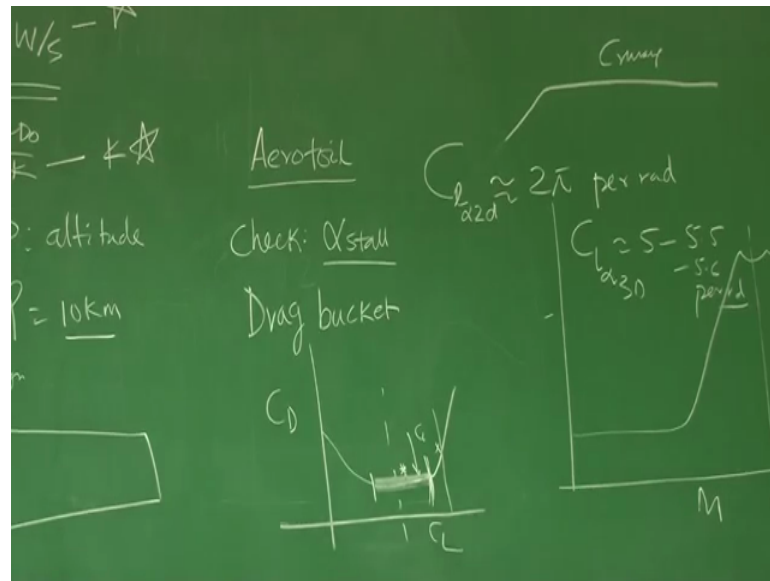 W/S - ☆
Do
K - K☆
: altitude
= 10km
Aerofoil
Check: αstall
Drag bucket
CD
CL
Clα2d ≈ 2π per rad
CLα3D ≈ 5 - 5.5
- 5.6
per rad
M